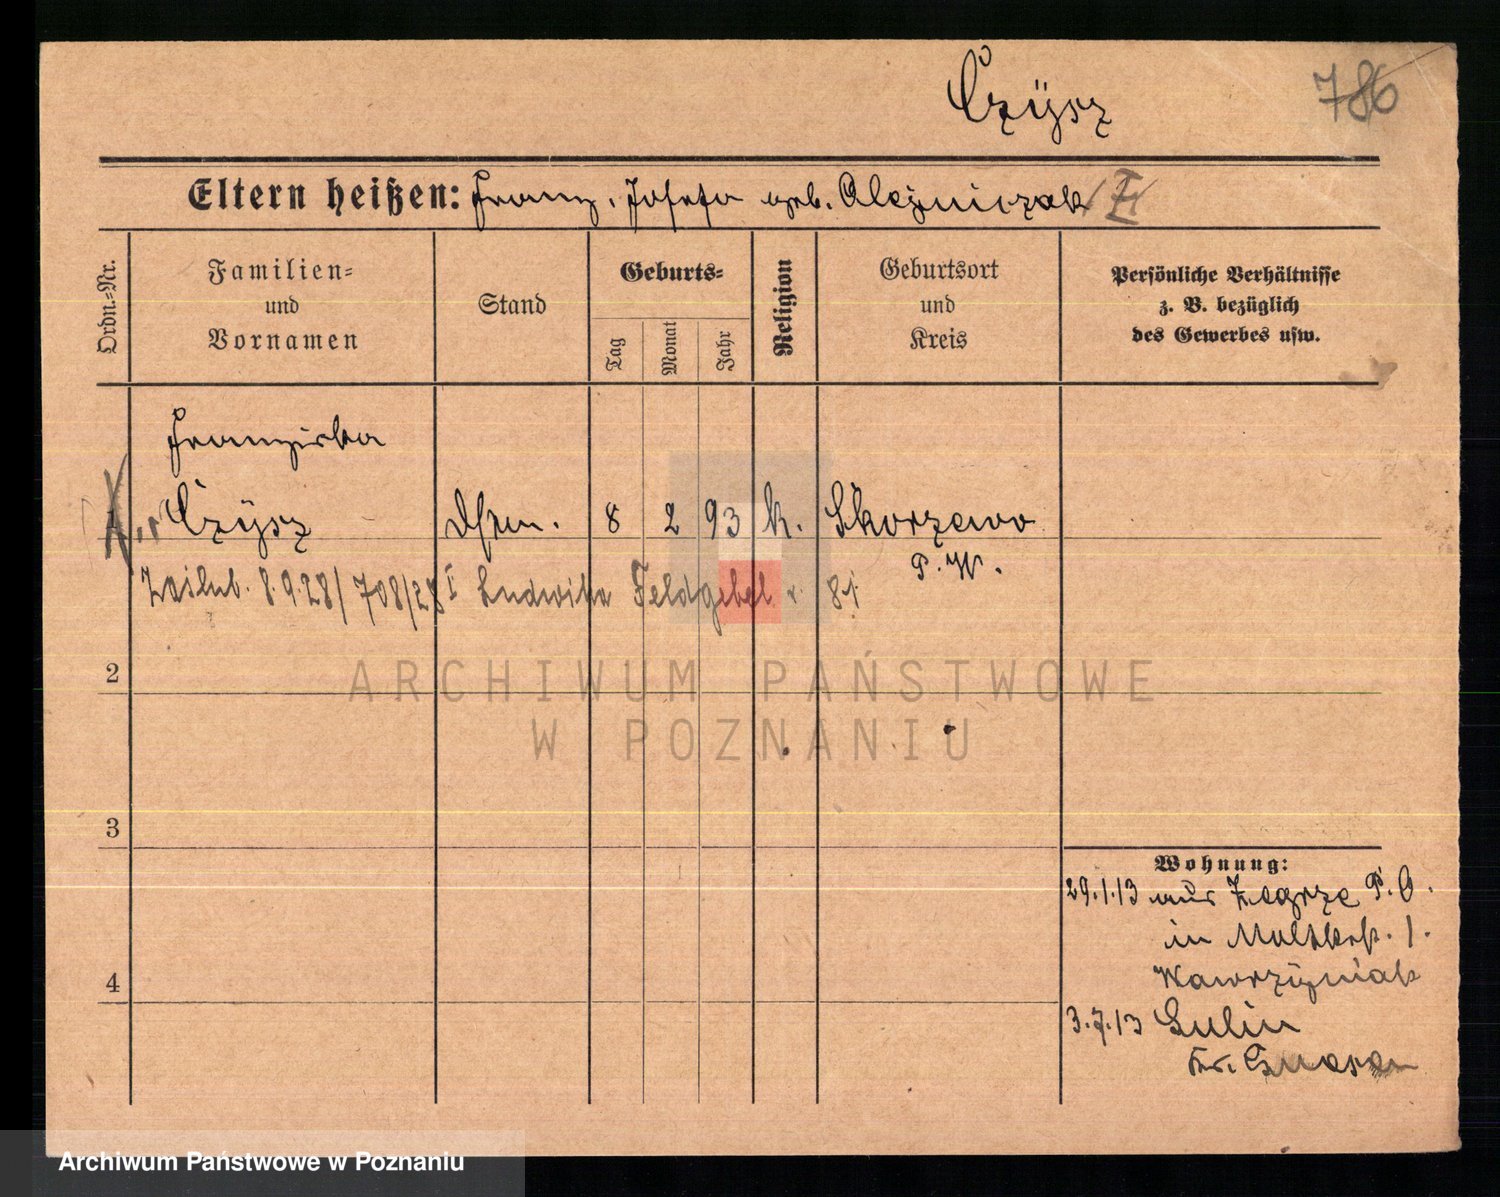 Czÿsz
786
Eltern heißen: Franz, Josefa geb. Olejniczak
Ordn.=Nr.
Familien=
und
Vornamen
Stand
Geburts=
Tag
Monat
Jahr
Religion
Geburtsort
und
Kreis
Persönliche Verhältnisse
z. B. bezüglich
des Gewerbes usw.
Franziska
1 Czÿsz 8 2 93 k. Skorzewo
P. W.
Zaślub. 8.9.28/708/28 I Ludwika Feldgebel
2
ARCHIWUM PAŃSTWOWE
W POZNANIU
3
4
Wohnung:
29.1.13 aus Zegrze P. O.
in Moltkestr. 1.
Wawrzÿniak
3.7.13
Kr. Gnesen
Archiwum Państwowe w Poznaniu